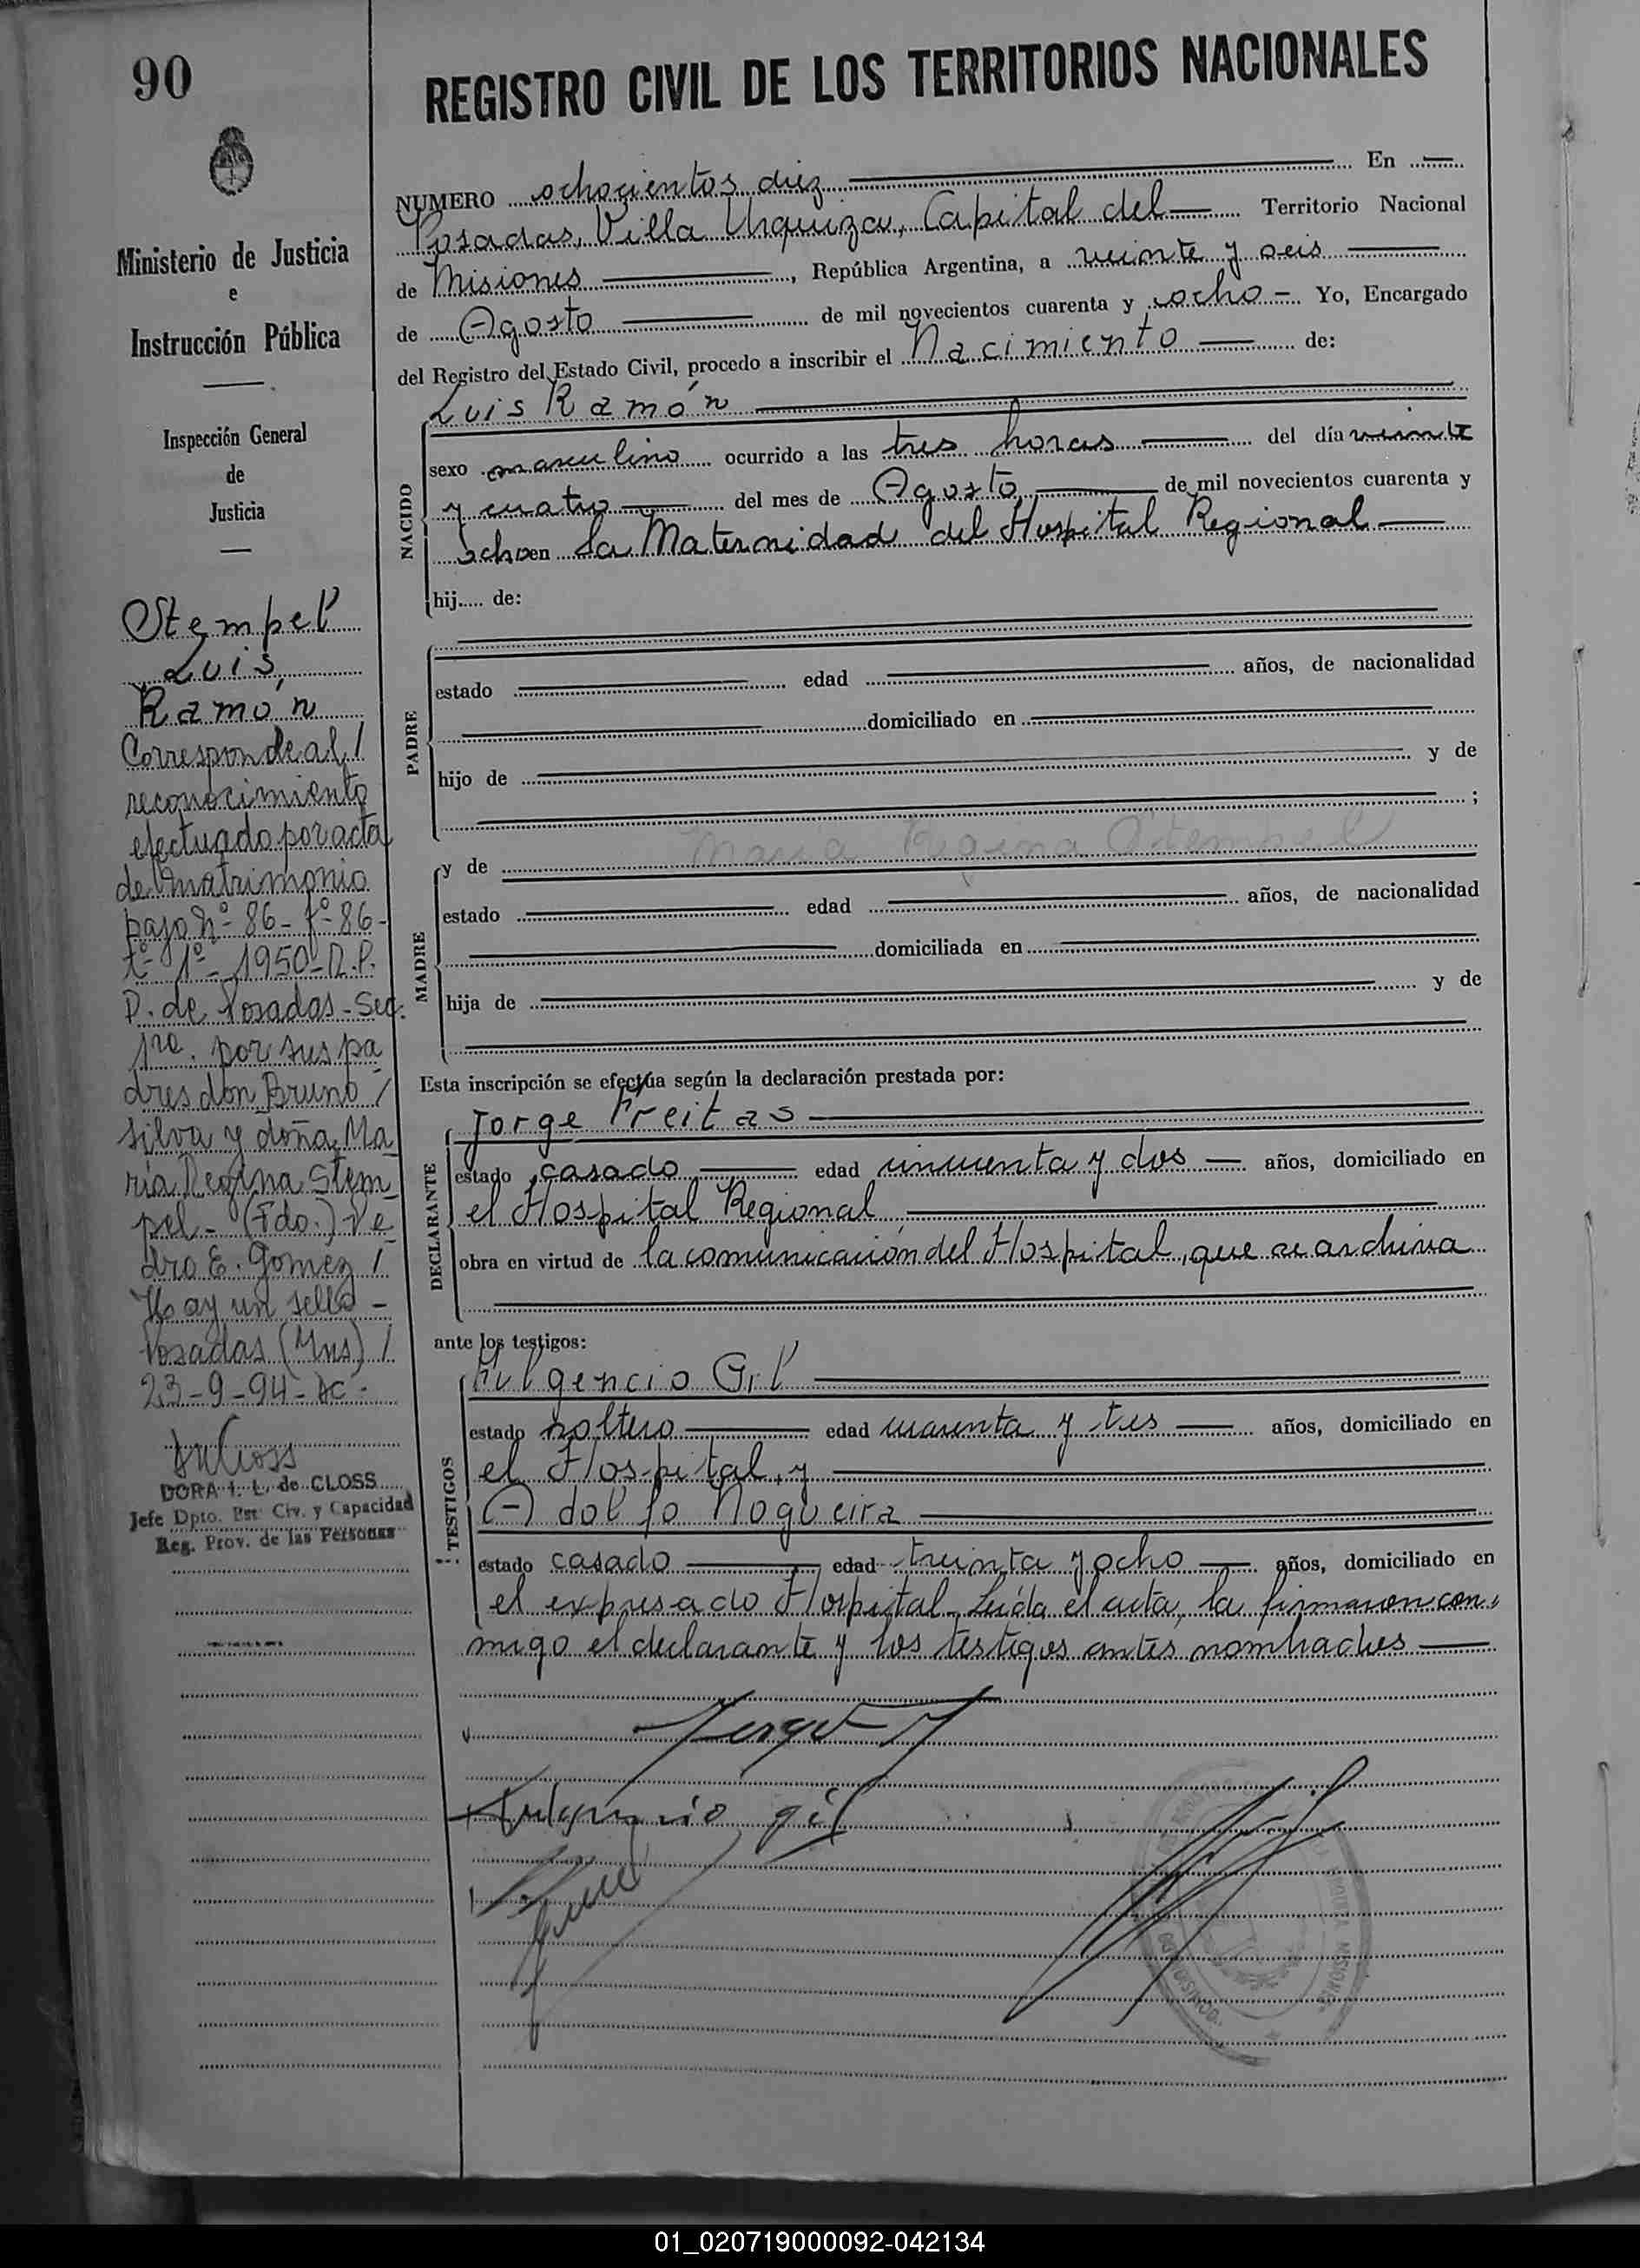 90
REGISTRO CIVIL DE LOS TERRITORIOS NACIONALES
Ministerio de Justicia
e
Instrucción Pública
Inspección General
de
Justicia
Stempel
Luis
Ramón
Corresponde al /
reconocimiento
efectuado por acta
de matrimonio
bajo nº- 86- fº- 86-
tº- 1º- 1950- R.P.
P. de Posadas- Sec.
1ra. por sus pa
dres don Bruno /
Silva y doña Ma
ría Regina Stem
pel- (Fdo.) Pe
dro E. Gomez /
Hay un sello-
Posadas (Mns) /
23-9-94-
DORA I. L. de CLOSS
Jefe Dpto. Est. Civ. y Capacidad
Reg. Prov. de las Personas
NUMERO ochocientos diez En
Posadas, Villa Urquiza, Capital del Territorio Nacional
de Misiones, República Argentina, a veinte y seis
de Agosto de mil novecientos cuarenta y ocho - Yo, Encargado
del Registro del Estado Civil, procedo a inscribir el Nacimiento de:
NACIDO
Luis Ramón
sexo masculino ocurrido a las tres horas del día veinte
y cuatro del mes de Agosto de mil novecientos cuarenta y
ocho en la Maternidad del Hospital Regional
hij..... de:
PADRE
estado edad años, de nacionalidad
domiciliado en
hijo de y de
;
MADRE
y de Maria Regina Stempel
estado edad años, de nacionalidad
domiciliada en
hija de y de
Esta inscripción se efectúa según la declaración prestada por:
DECLARANTE
Jorge Freitas
estado casado edad cincuenta y dos años, domiciliado en
el Hospital Regional
obra en virtud de la comunicación del Hospital, que se archiva
ante los testigos:
TESTIGOS
Fulgencio Gil
estado soltero edad cuarenta y tres años, domiciliado en
el Hospital, y
Adolfo Nogueira
estado casado edad treinta y ocho años, domiciliado en
el expresado Hospital. Leída el acta, la firmaron con-
migo el declarante y los testigos antes nombrados
Jorge
Fulgencio gil
MISIONES
01_020719000092-042134